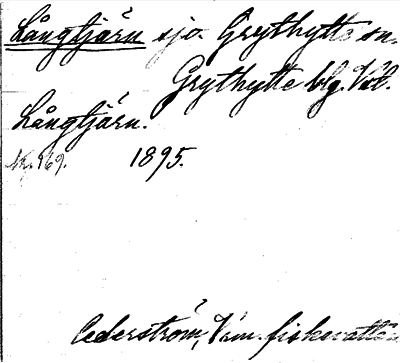 Långtjärn sjö. Grythytte sn.
Grythytte blg. Vstl.
Långtjärn.
1895.
Cederström, Vsm. fiskevatten